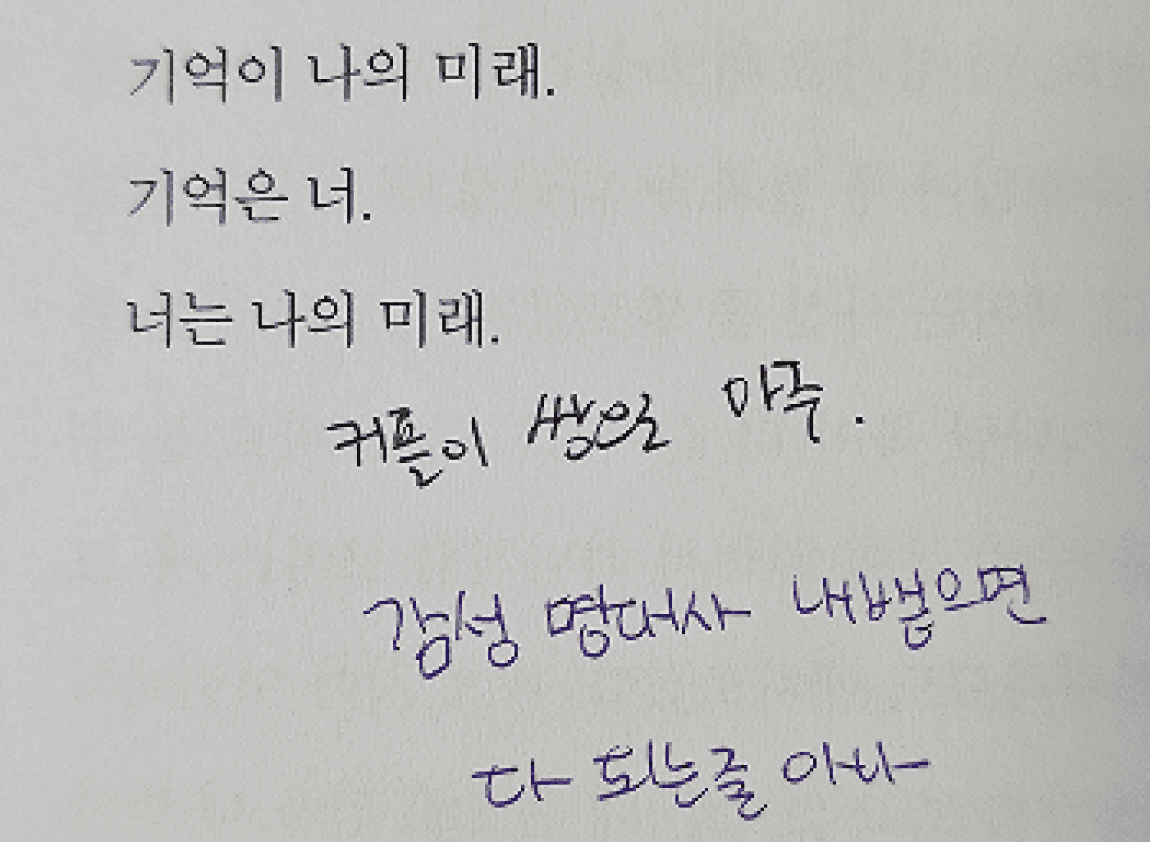 기억이 나의 미래.
기억은 너.
너는 나의 미래.
커플이 쌍으로 아주.
감성 명대사 내뱉으면
다 되는줄 아나